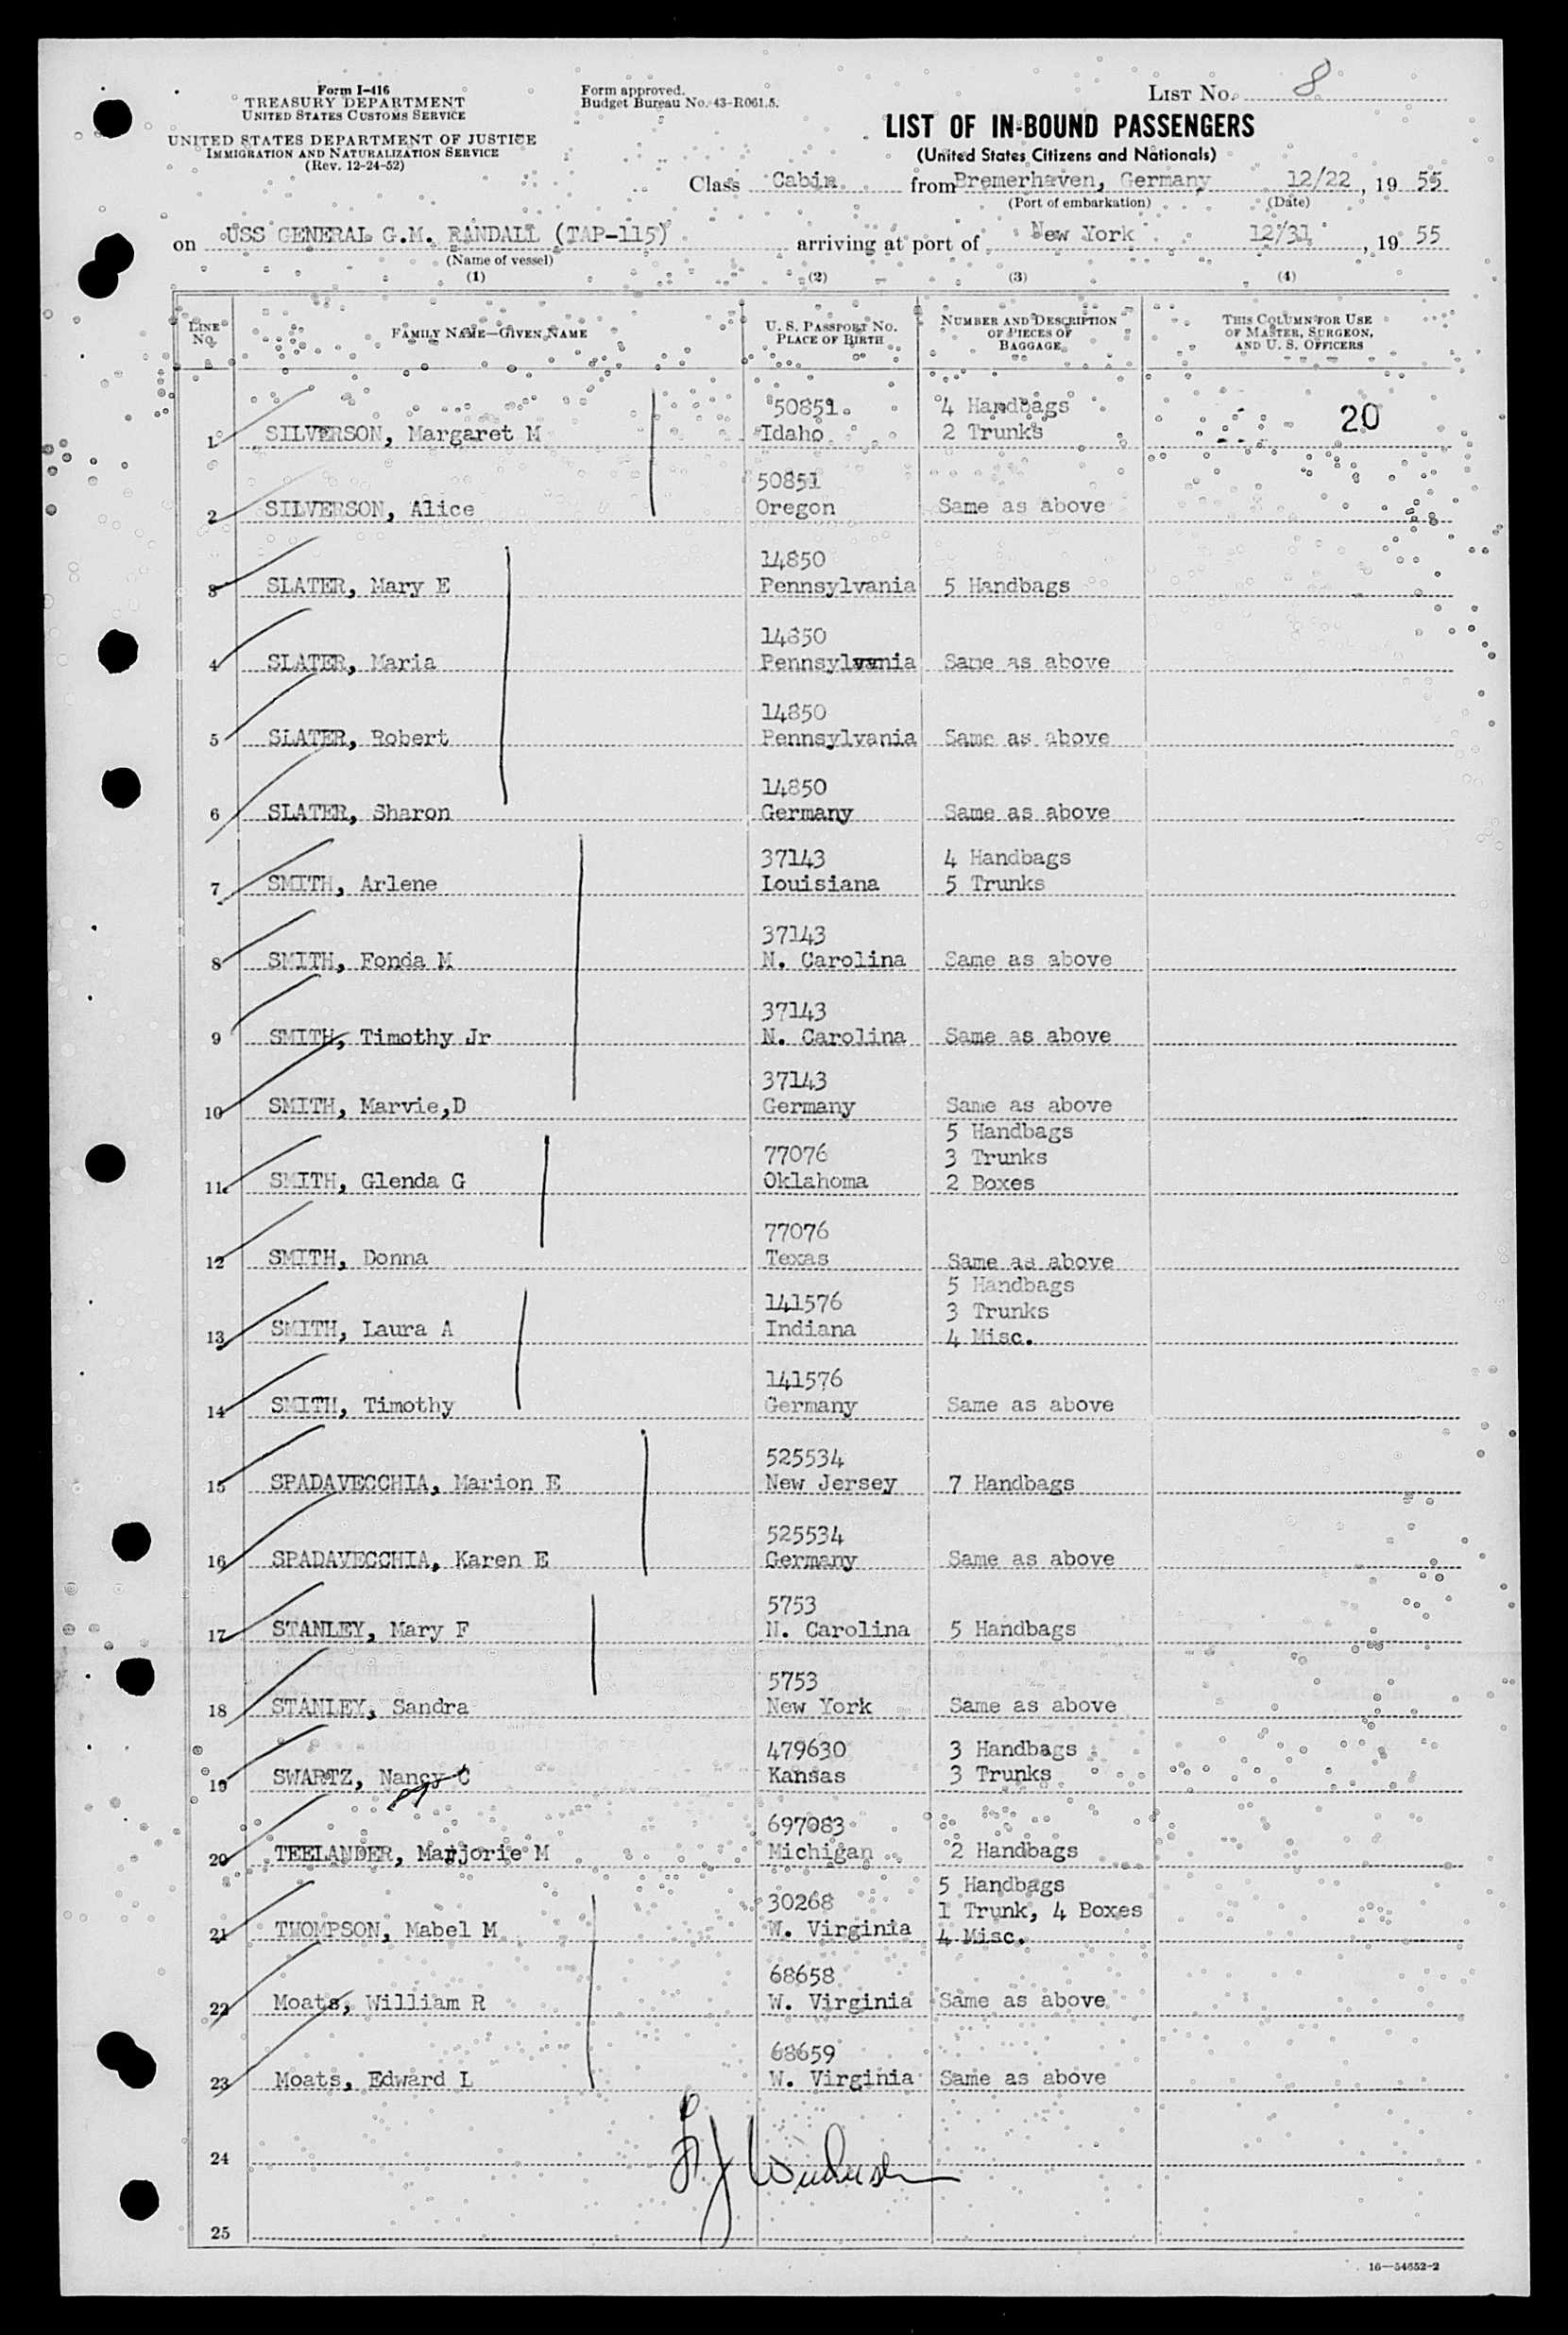 Form I-416
TREASURY DEPARTMENT
UNITED STATES CUSTOMS SERVICE
UNITED STATES DEPARTMENT OF JUSTICE
IMMIGRATION AND NATURALIZATION SERVICE
(Rev. 12-24-52)
Form approved.
Budget Bureau No. 43-R061.5.
LIST No. 8
LIST OF IN-BOUND PASSENGERS
(United States Citizens and Nationals)
Class Cabin from Bremerhaven, Germany 12/22, 19 55
(Port of embarkation) (Date)
on USS GENERAL G.M. RANDALL (TAP-115) arriving at port of New York 12/31, 19 55
(Name of vessel)
(1) (2) (3) (4)
LINE NO. FAMILY NAME—GIVEN NAME U. S. PASSPORT NO. PLACE OF BIRTH NUMBER AND DESCRIPTION OF PIECES OF BAGGAGE THIS COLUMN FOR USE OF MASTER, SURGEON, AND U. S. OFFICERS
50851 4 Handbags 20
1 SILVERSON, Margaret M Idaho 2 Trunks
50851
2 SILVERSON, Alice Oregon Same as above
14850
3 SLATER, Mary E Pennsylvania 5 Handbags
14850
4 SLATER, Maria Pennsylvania Same as above
14850
5 SLATER, Robert Pennsylvania Same as above
14850
6 SLATER, Sharon Germany Same as above
37143 4 Handbags
7 SMITH, Arlene Louisiana 5 Trunks
37143
8 SMITH, Fonda M N. Carolina Same as above
37143
9 SMITH, Timothy Jr N. Carolina Same as above
37143
10 SMITH, Marvie,D Germany Same as above
5 Handbags
77076 3 Trunks
11 SMITH, Glenda G Oklahoma 2 Boxes
77076
12 SMITH, Donna Texas Same as above
5 Handbags
141576 3 Trunks
13 SMITH, Laura A Indiana 4 Misc.
141576
14 SMITH, Timothy Germany Same as above
525534
15 SPADAVECCHIA, Marion E New Jersey 7 Handbags
525534
16 SPADAVECCHIA, Karen E Germany Same as above
5753
17 STANLEY, Mary F N. Carolina 5 Handbags
5753
18 STANLEY, Sandra New York Same as above
479630 3 Handbags
19 SWARTZ, Nancy C Kansas 3 Trunks
697083
20 TEELANDER, Marjorie M Michigan 2 Handbags
5 Handbags
30268 1 Trunk, 4 Boxes
21 THOMPSON, Mabel M W. Virginia 4 Misc.
68658
22 Moats, William R W. Virginia Same as above
68659
23 Moats, Edward L W. Virginia Same as above
24
25
16—54652-2